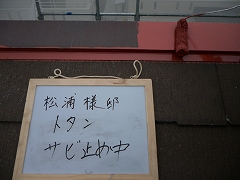 松浦様邸
トタン
サビ止め中